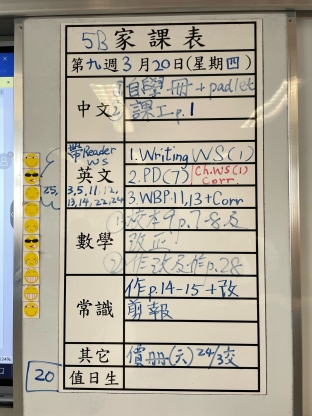 5B 家課表
第九週 3月20日(星期四)
中文 ① 自學冊 + padlet
② 課工 p.1
帶 Reader WS
英文
3,5,11,12,
13,14,22,24
25,
1. Writing WS(1)
2. PD(7) Ch.WS(1) Corr.
3. WBP.11,13 + Corr
數學 ① 校本9 p.7-8及
改正!
② 作改及作p.28
常識 作p.14-15 + 改
剪報
其它 價冊(六) 24/3交
20 值日生